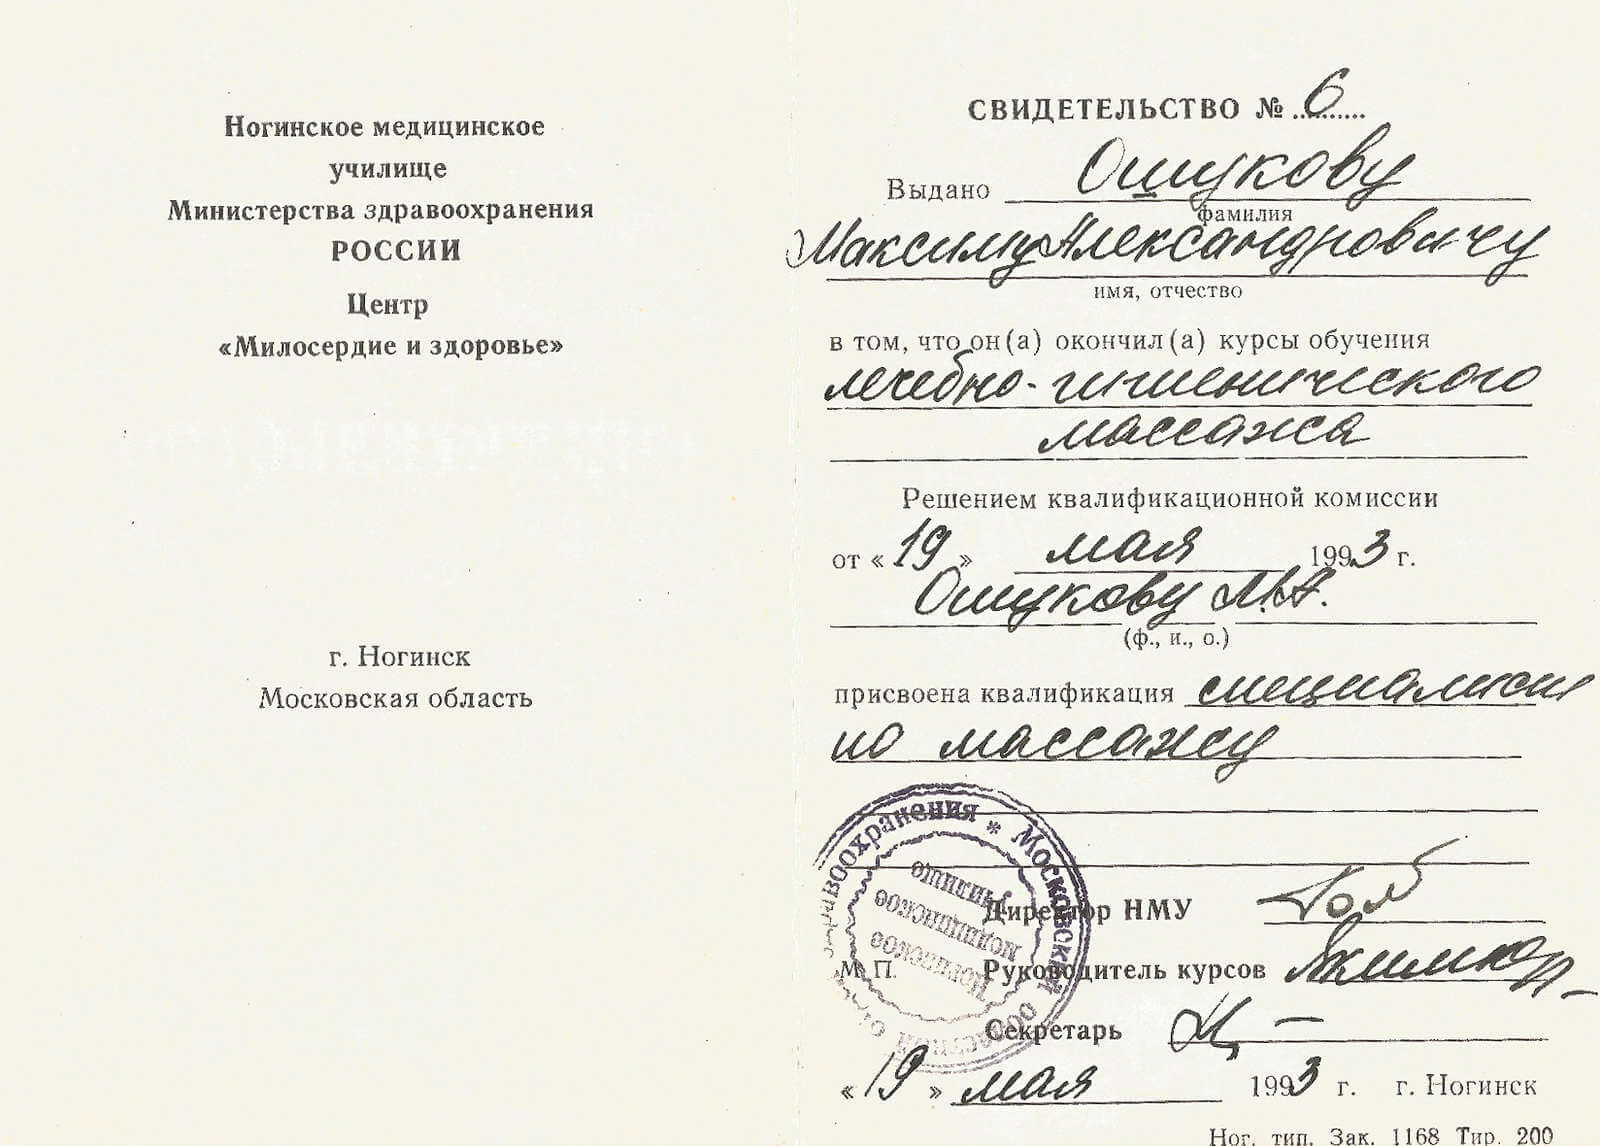 Ногинское медицинское
училище
Министерства здравоохранения
РОССИИ
Центр
«Милосердие и здоровье»
г. Ногинск
Московская область
СВИДЕТЕЛЬСТВО № 6
Выдано Ошукову
фамилия
Максиму Александровичу
имя, отчество
в том, что он(а) окончил(а) курсы обучения
лечебно-гигиенического
массажа
Решением квалификационной комиссии
от «19» мая 1993 г.
Ошукову М.А.
(ф., и., о.)
присвоена квалификация специалист
по массажу
Директор НМУ
М. П. Руководитель курсов
Секретарь
«19» мая 1993 г. г. Ногинск
Ног. тип. Зак. 1168 Тир. 200
здравоохранения * Московской области
Ногинское
медицинское
училище